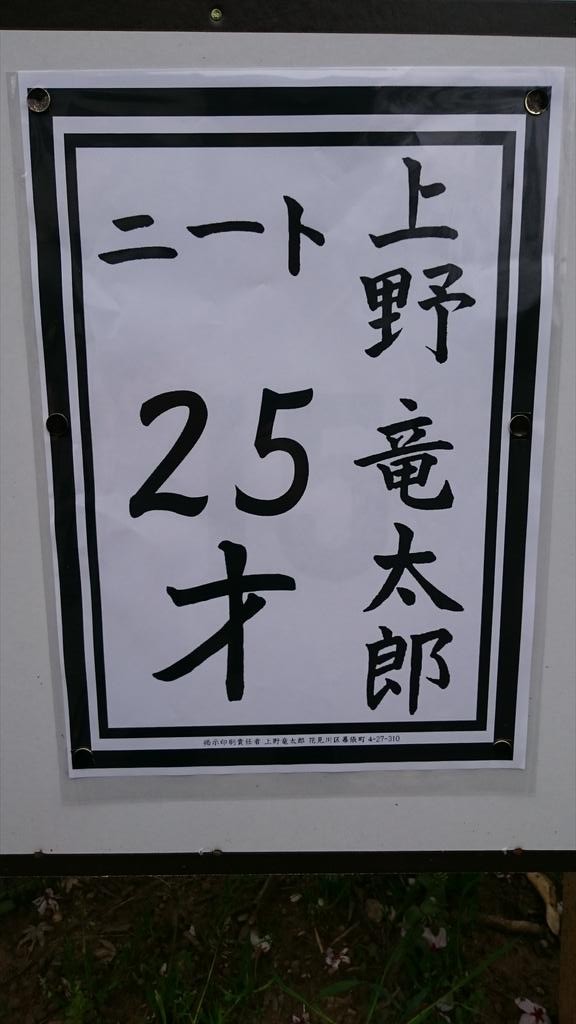 上野 竜太郎
ニート
25
才
掲示印刷責任者 上野竜太郎 花見川区幕張町 4-27-310